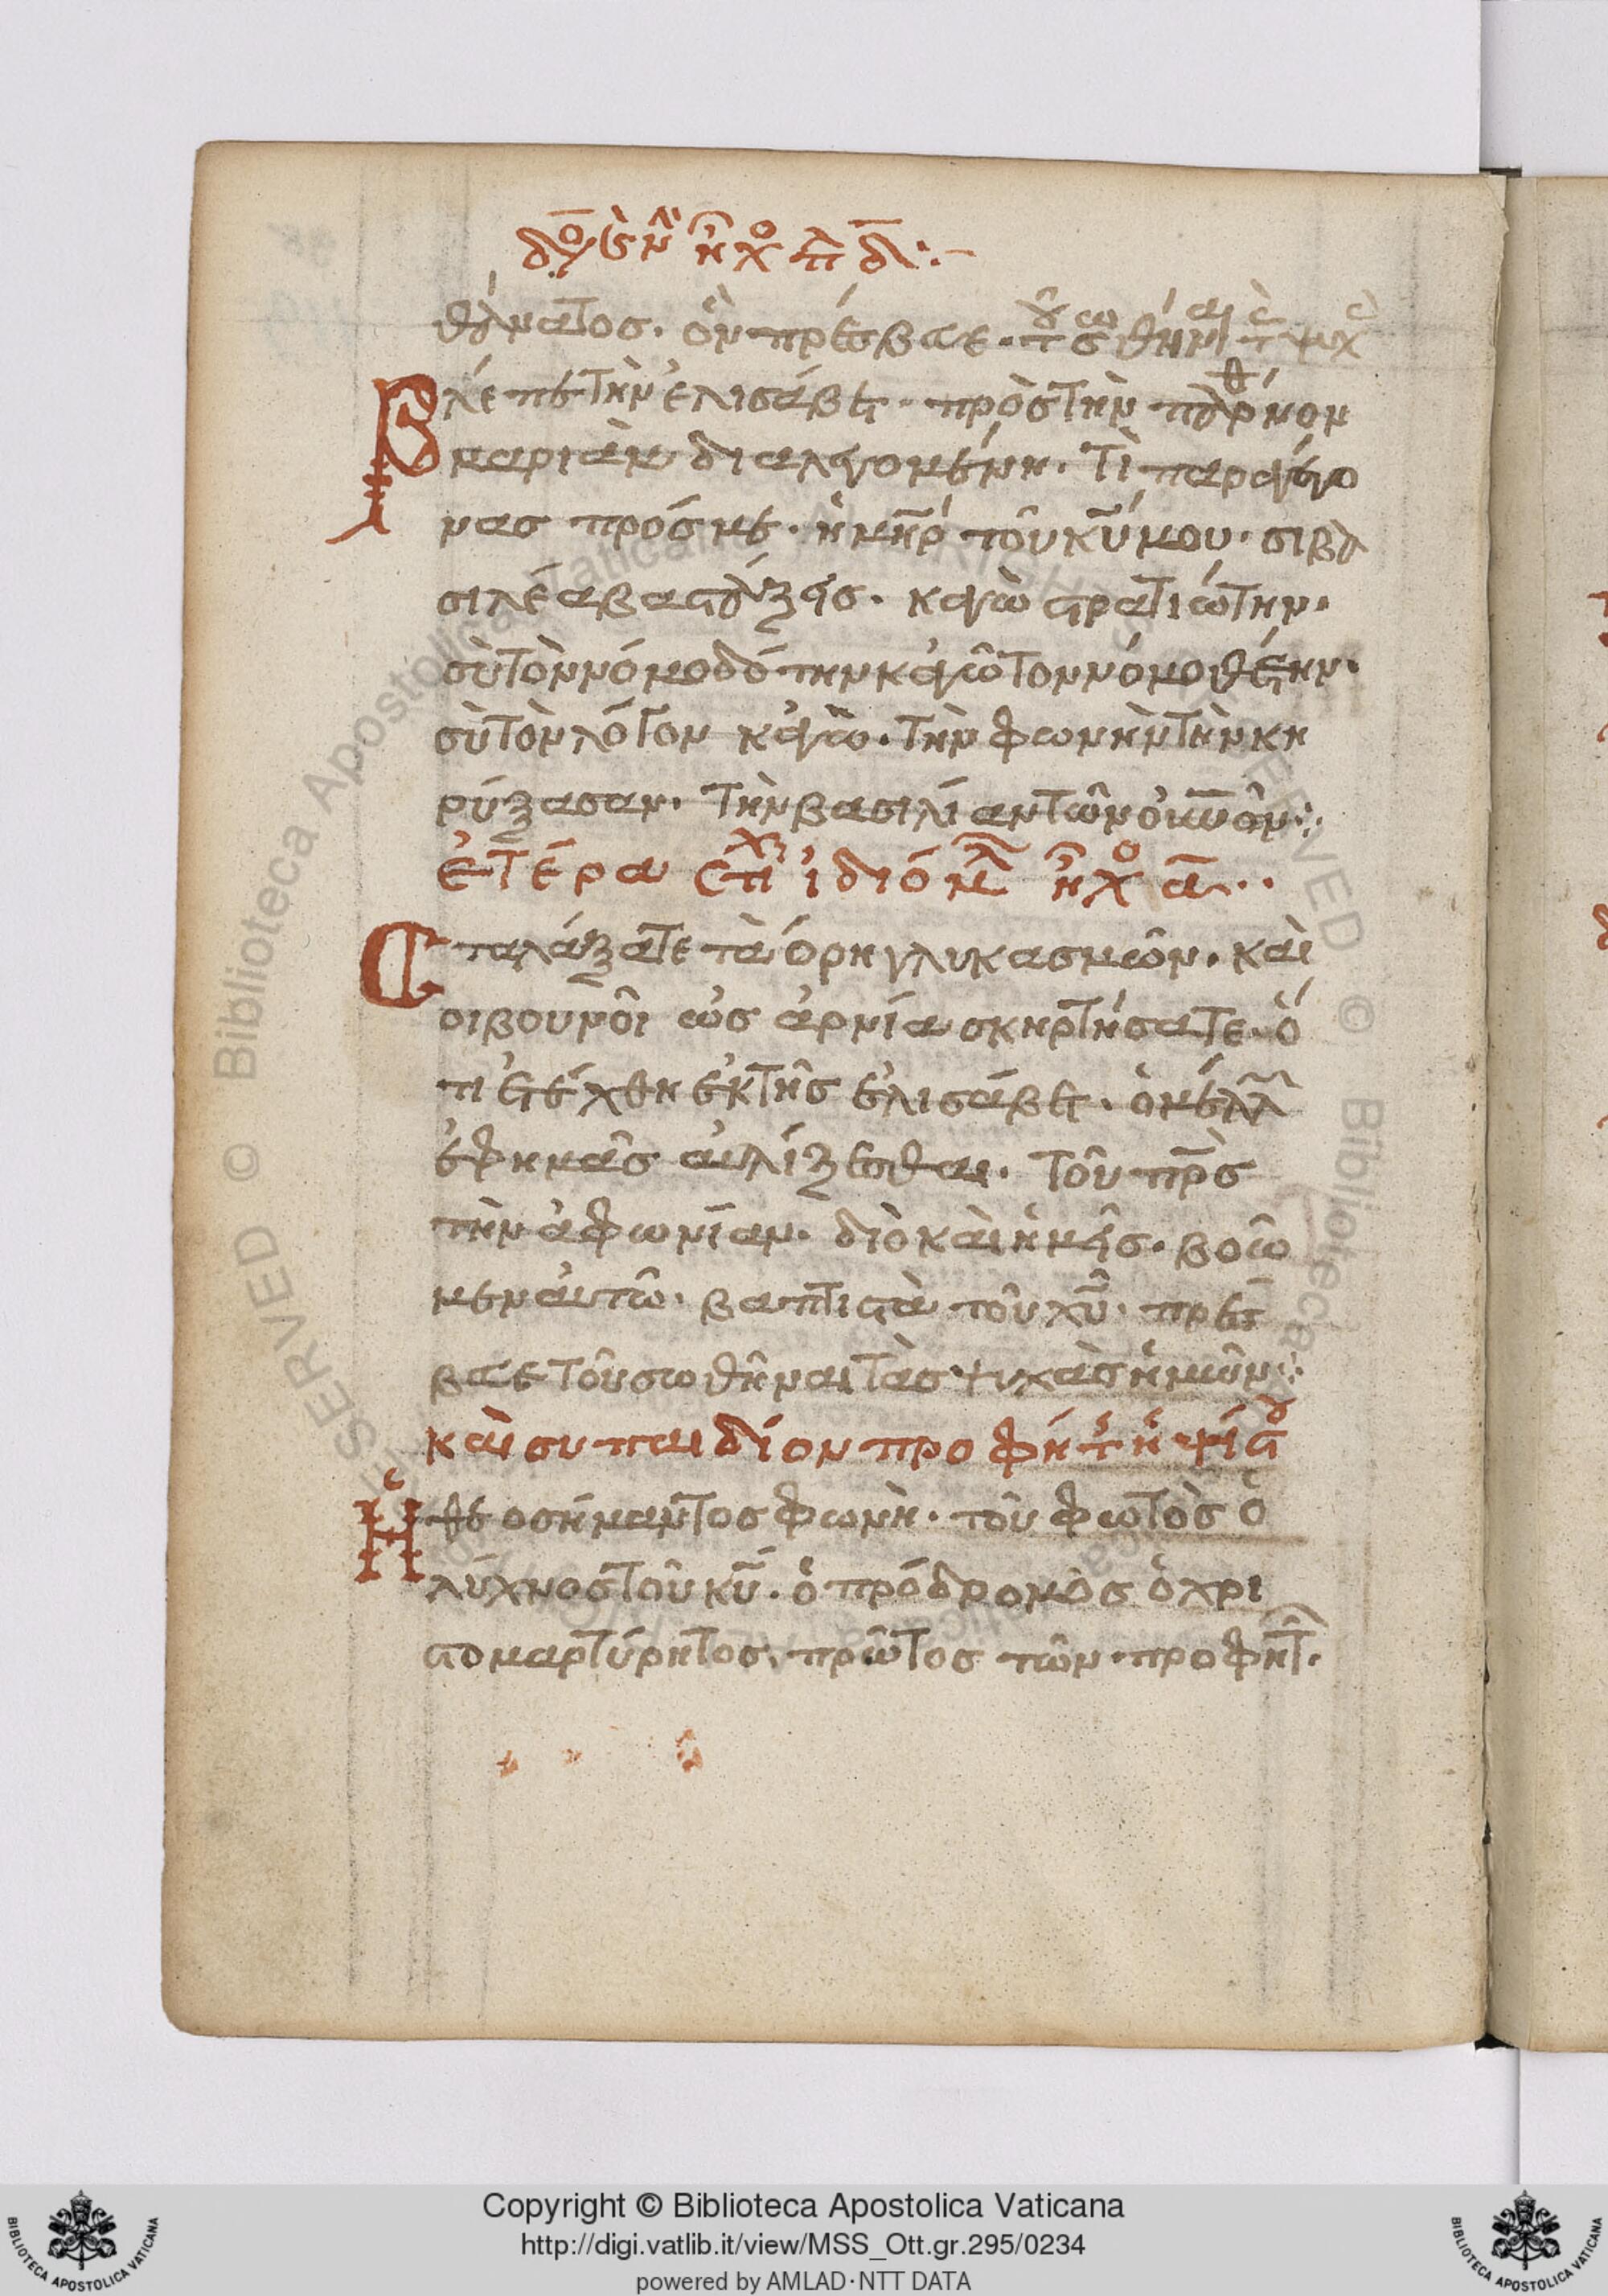 δόξ κ νῦν ἦχο πλ δ :-
θέλματος. ὃν πρέσβευε. τοῦ σωθῆναι τ ψυχ
Βλέπε τὴν ἐλισάβετ. πρὸς τὴν παρθένον
μαριὰμ διαλεγομένη. Τί παραγέγο
νας πρόσ με. ἡ μηρ τοῦ κυ μου. σι βα
σιλέα βαστάζεις. καγὼ στρατιώτην.
σὺ τὸν νόμοδότην καγὼ τον νόμοθέτην.
σὺ τὸν λόγον καγὼ. τὴν φωνὴν τὴν κη
ρύξασαν. τὴν βασιλίαν τῶν ουνῶν:
ἑτέρα στιχ ἰδιόμελ ἦχο α..
Σταλάξατε τὰ όρη γλυκασμῶν. καὶ
οι βουνοὶ ὡς ἀρνία σκηρτήσατε. ὅ
τι ἐτέχθη ἐκ τῆς ἐλισάβετ. ὁ μέλλ
ἐφ ημᾶς αὐλίζεσθαι. τοῦ πρς
τὴν ἀφωνίαν. διὸ καὶ ἡμεῖς. βοῶ
μεν αὐτῶ. βαπτιστὰ τοῦ χυ. πρεσ
βευε τοῦ σωθῆναι τὰς ψυχὰς ἡμῶν:
καὶ συ παιδίον προφήτης ὑψίστου
Ἡ θεοσήμαντος φωνὴ. τοῦ φωτὸς ὁ
λύχνος τοῦ κυ. ὁ πρόδρομὸς ὁ χρι
στομαρτύρητος. πρῶτος τῶν προφητ.
Copyright © Biblioteca Apostolica Vaticana
http://digi.vatlib.it/view/MSS_Ott.gr.295/0234
powered by AMLAD·NTT DATA
BIBLIOTECA APOSTOLICA VATICANA
BIBLIOTECA APOSTOLICA VATICANA